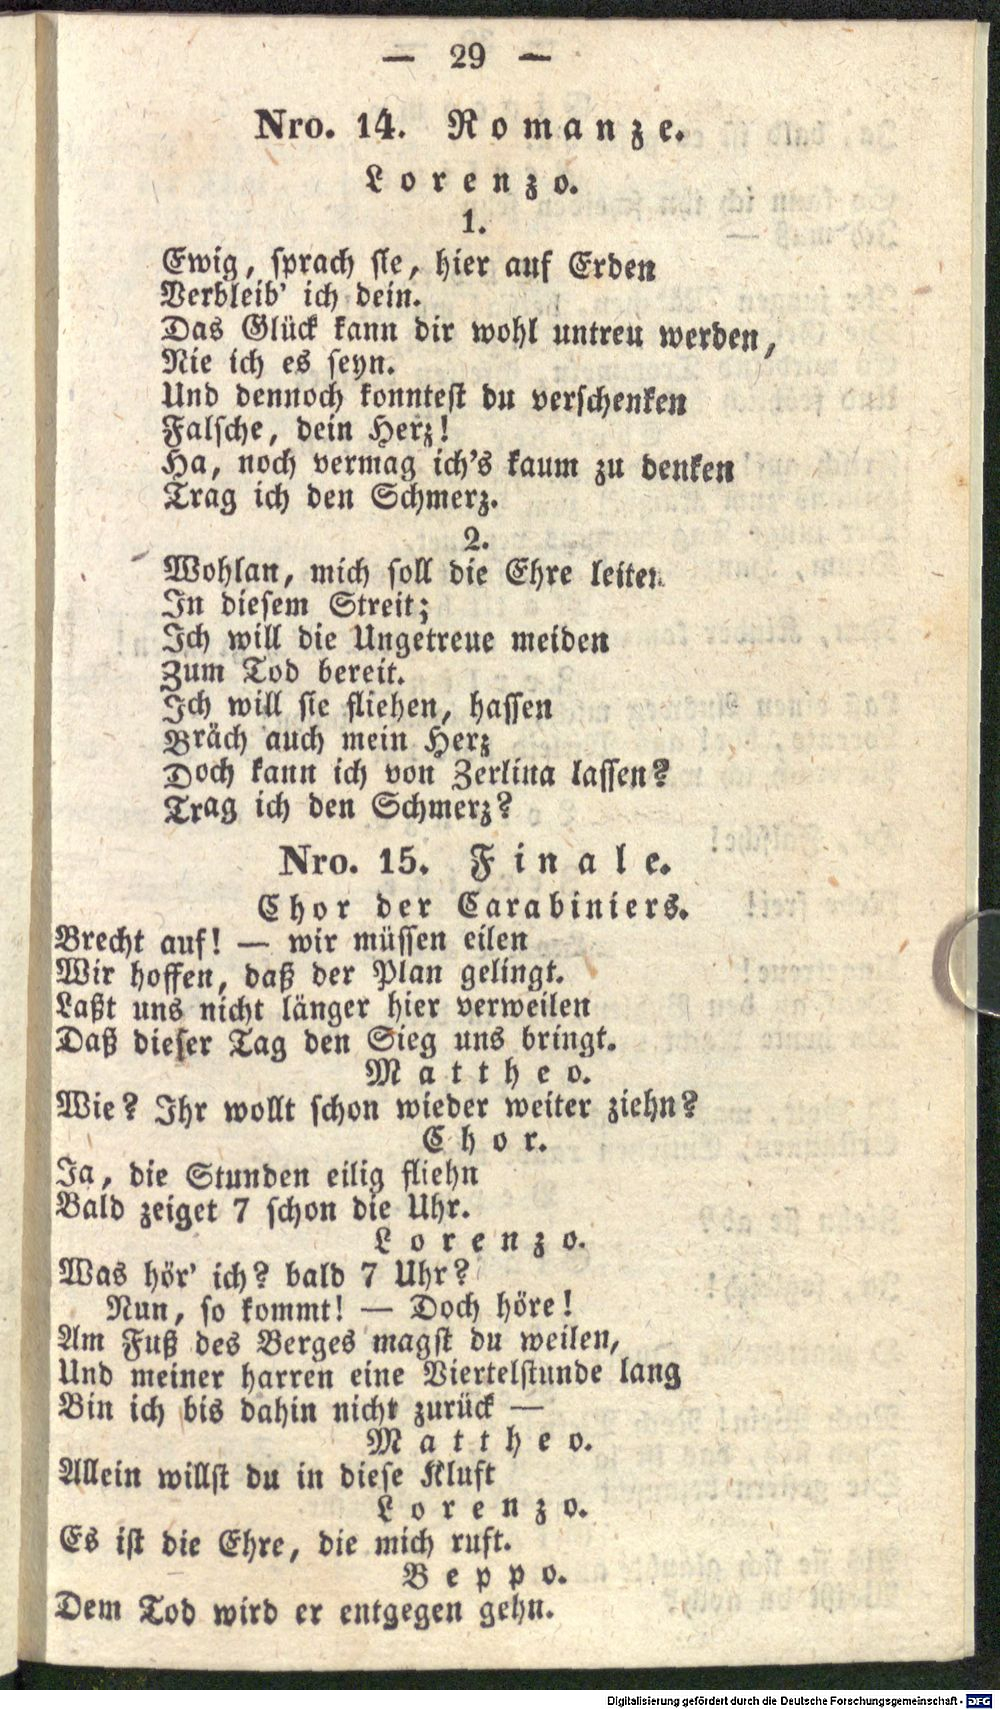 — 29 —
Nro. 14. Romanze.
Lorenzo.
1.
Ewig, sprach sie, hier auf Erden
Verbleib' ich dein.
Das Glück kann dir wohl untreu werden,
Nie ich es seyn.
Und dennoch konntest du verschenken
Falsche, dein Herz!
Ha, noch vermag ich's kaum zu denken
Trag ich den Schmerz.
2.
Wohlan, mich soll die Ehre leiten
In diesem Streit;
Ich will die Ungetreue meiden
Zum Tod bereit.
Ich will sie fliehen, hassen
Bräch auch mein Herz
Doch kann ich von Zerlina lassen?
Trag ich den Schmerz?
Nro. 15. Finale.
Chor der Carabiniers.
Brecht auf! — wir müssen eilen
Wir hoffen, daß der Plan gelingt.
Laßt uns nicht länger hier verweilen
Daß dieser Tag den Sieg uns bringt.
Mattheo.
Wie? Ihr wollt schon wieder weiter ziehn?
Chor.
Ja, die Stunden eilig fliehn
Bald zeiget 7 schon die Uhr.
Lorenzo.
Was hör' ich? bald 7 Uhr?
Nun, so kommt! — Doch höre!
Am Fuß des Berges magst du weilen,
Und meiner harren eine Viertelstunde lang
Bin ich bis dahin nicht zurück —
Mattheo.
Allein willst du in diese Kluft
Lorenzo.
Es ist die Ehre, die mich ruft.
Beppo.
Dem Tod wird er entgegen gehn.
Digitalisierung gefördert durch die Deutsche Forschungsgemeinschaft - DFG